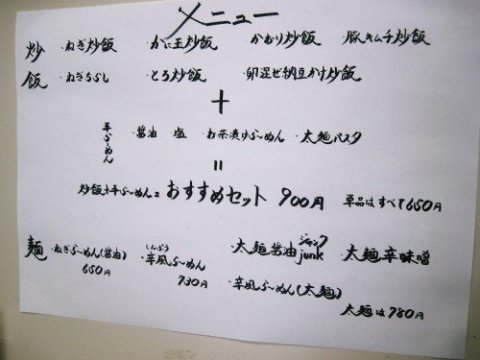 メニュー
炒飯 ・ねぎ炒飯 ・かに玉炒飯 ・かおり炒飯 ・豚キムチ炒飯
・とろ炒飯 ・卵混ぜ納豆かけ炒飯
＋
半らーめん ・醤油 ・塩 ・お茶漬けらーめん ・太麺パスタ
＝
炒飯＋半らーめん＝おすすめセット 900円 単品はすべて650円
麺 ・ねぎらーめん(醤油) ・辛風らーめん ・太麺醤油junk ジャンク ・太麺辛味噌
650円 730円 ・辛風らーめん(太麺)
太麺は780円